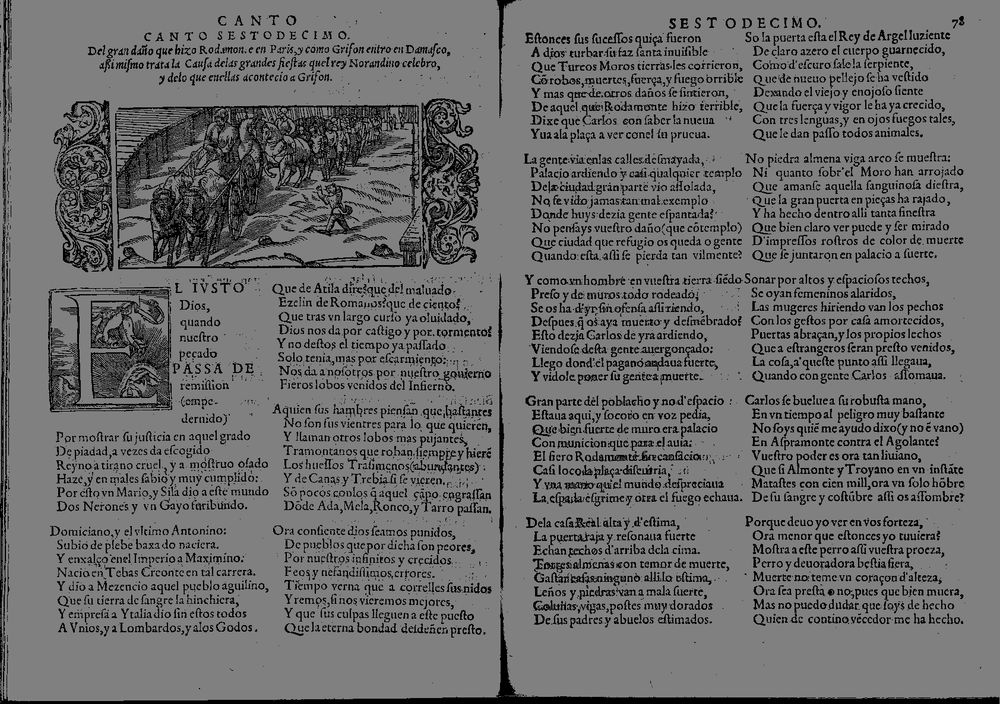 CANTO
CANTO SESTODECIMO.
Del gran daño que hizo Rodamon.e en Paris, y como Grifon entro en Damasco,
assi mismo trata la Causa delas grandes fiestas quel rey Norandino celebro,
y delo que enellas acontecio a Grifon.
EL IVSTO
Dios,
quando
nuestro
pecado
PASSA DE
remission
(empe-
dernido)
Por mostrar su justicia en aquel grado
De piadad, a vezes da escogido
Reyno a tirano cruel, y a mostruo osado
Haze, y en males sabio y muy cumplido:
Por esto vn Mario, y Sila dio a este mundo
Dos Nerones y vn Gayo furibundo.
Domiciano, y el vltimo Antonino:
Subio de plebe baxa do naciera.
Y enxalço enel Imperio a Maximino:
Nacio en Tebas Creonte en tal carrera.
Y dio a Mezencio aquel pueblo aguilino,
Que su tierra de sangre la hinchiera,
Y empresa a Ytalia dio sin estos todos
A Vnios, y a Lombardos, y alos Godos.
Que de Atila dire, que del maluado
Ezelin de Romanos? que de ciento?
Que tras vn largo curso ya oluidado,
Dios nos da por castigo y por tormento?
Y no destos el tiempo ya passado
Solo tenia, mas por escarmiento:
Nos da a nosotros por nuestro gouierno
Fieros lobos venidos del Infierno.
Aquien sus hambres piensan que, hastantes
No son sus vientres para lo que quieren,
Y llaman otros lobos mas pujantes,
Tramontanos que roban, siempre y hierē
Los huessos Trasimenos (abundantes)
Y de Canas y Trebia si se vieren,
Sō pocos con los q̄ aquel çapo engrassan
Dōde Ada, Mela, Ronco, y Tarro passan.
Ora consiente dios seamos punidos,
De pueblos que por dicha son peores,
Por nuestros infinitos y crecidos
Feos y nefandissimos, errores.
Tiempo verna que a correlles sus nidos
Yremos, si nos vieremos mejores,
Y que sus culpas lleguen a este puesto
Que la eterna bondad desdeñen presto.
SESTODECIMO. 78
Estonces sus sucessos quiça fueron
A dios turbar su faz santa inuisible
Que Turcos Moros tierras les corrieron,
Cō robos, muertes, fuerça, y fuego orrible
Y mas que de otros daños se sintieron,
De aquel que Rodamonte hizo terrible,
Dixe que Carlos con saber la nueua
Yua ala plaça a ver conel su prueua.
La gente via enlas calles desmayada,
Palacio ardiendo y casi qualquier templo
Dela ciudad gran parte vio assolada,
No se vido jamas tan mal exemplo
Donde huys dezia gente espantada?
No pensays vuestro daño (que cōtemplo)
Que ciudad que refugio os queda o gente
Quando esta assi se pierda tan vilmente?
Y como vn hombre en vuestra tierra siēdo
Preso y de muros todo rodeado,
Se os ha d'yr sin ofensa assi riendo,
Despues q̄ os aya muerto y desmēbrado?
Esto dezia Carlos de yra ardiendo,
Viendose desta gente auergonçado:
Llego dond'el pagano andaua fuerte,
Y vidole poner su gente a muerte.
Gran parte del poblacho y no d'espacio
Estaua aqui, y socorro en voz pedia,
Que bien fuerte de muro era palacio
Con municion que para el auia:
El fiero Rodamonte
Casi loco la plaça discurria,
Y vna mano qu'el mundo despreciaua
La espada esgrime y otra el fuego echaua.
Dela casa Real alta y d'estima,
La puerta raja y resonaua fuerte
Echan techos d'arriba dela cima.
Torres almenas con temor de muerte,
Gastar casas ninguno alli lo estima,
Leños y piedras van a mala suerte,
Colunas, vigas, postes muy dorados
De sus padres y abuelos estimados.
So la puerta esta el Rey de Argel luziente
De claro azero el cuerpo guarnecido,
Como d'escuro sale la serpiente,
Que de nueuo pellejo se ha vestido
Dexando el viejo y enojoso siente
Que la fuerça y vigor le ha ya crecido,
Con tres lenguas, y en ojos fuegos tales,
Que le dan passo todos animales.
No piedra almena viga arco se muestra:
Ni quanto sobr'el Moro han arrojado
Que amanse aquella sanguinosa diestra,
Que la gran puerta en pieças ha rajado,
Y ha hecho dentro alli tanta finestra
Que bien claro ver puede y ser mirado
D'impressos rostros de color de muerte
Que se juntaron en palacio a suerte.
Sonar por altos y espaciosos techos,
Se oyan femeninos alaridos,
Las mugeres hiriendo van los pechos
Con los gestos por casa amortecidos,
Puertas abraçan, y los propios lechos
Que a estrangeros seran presto venidos,
La cosa, a queste punto assi llegaua,
Quando con gente Carlos assomaua.
Carlos se buelue a su robusta mano,
En vn tiempo al peligro muy bastante
No soys quiē me ayudo dixo (y no ē vano)
En Aspramonte contra el Agolante?
Vuestro poder es ora tan liuiano,
Que si Almonte y Troyano en vn instāte
Matastes con cien mill, ora vn solo hōbre
De su sangre y costūbre assi os assombre?
Porque deuo yo ver en vos forteza,
Ora menor que estonces yo tuuiera?
Mostra a este perro assi vuestra proeza,
Perro y deuoradora bestia fiera,
Muerte no teme vn coraçon d'alteza,
Ora sea presta o no, pues que bien muera,
Mas no puedo dudar que soys de hecho
Quien de contino vēcedor me ha hecho.